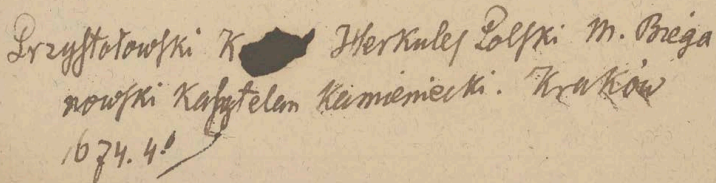 Przyſtołowſki K Herkuleſ Polſki M. Brėga
nowſki Kaſztelan Kamieniecki. Kraków
1674. 4º